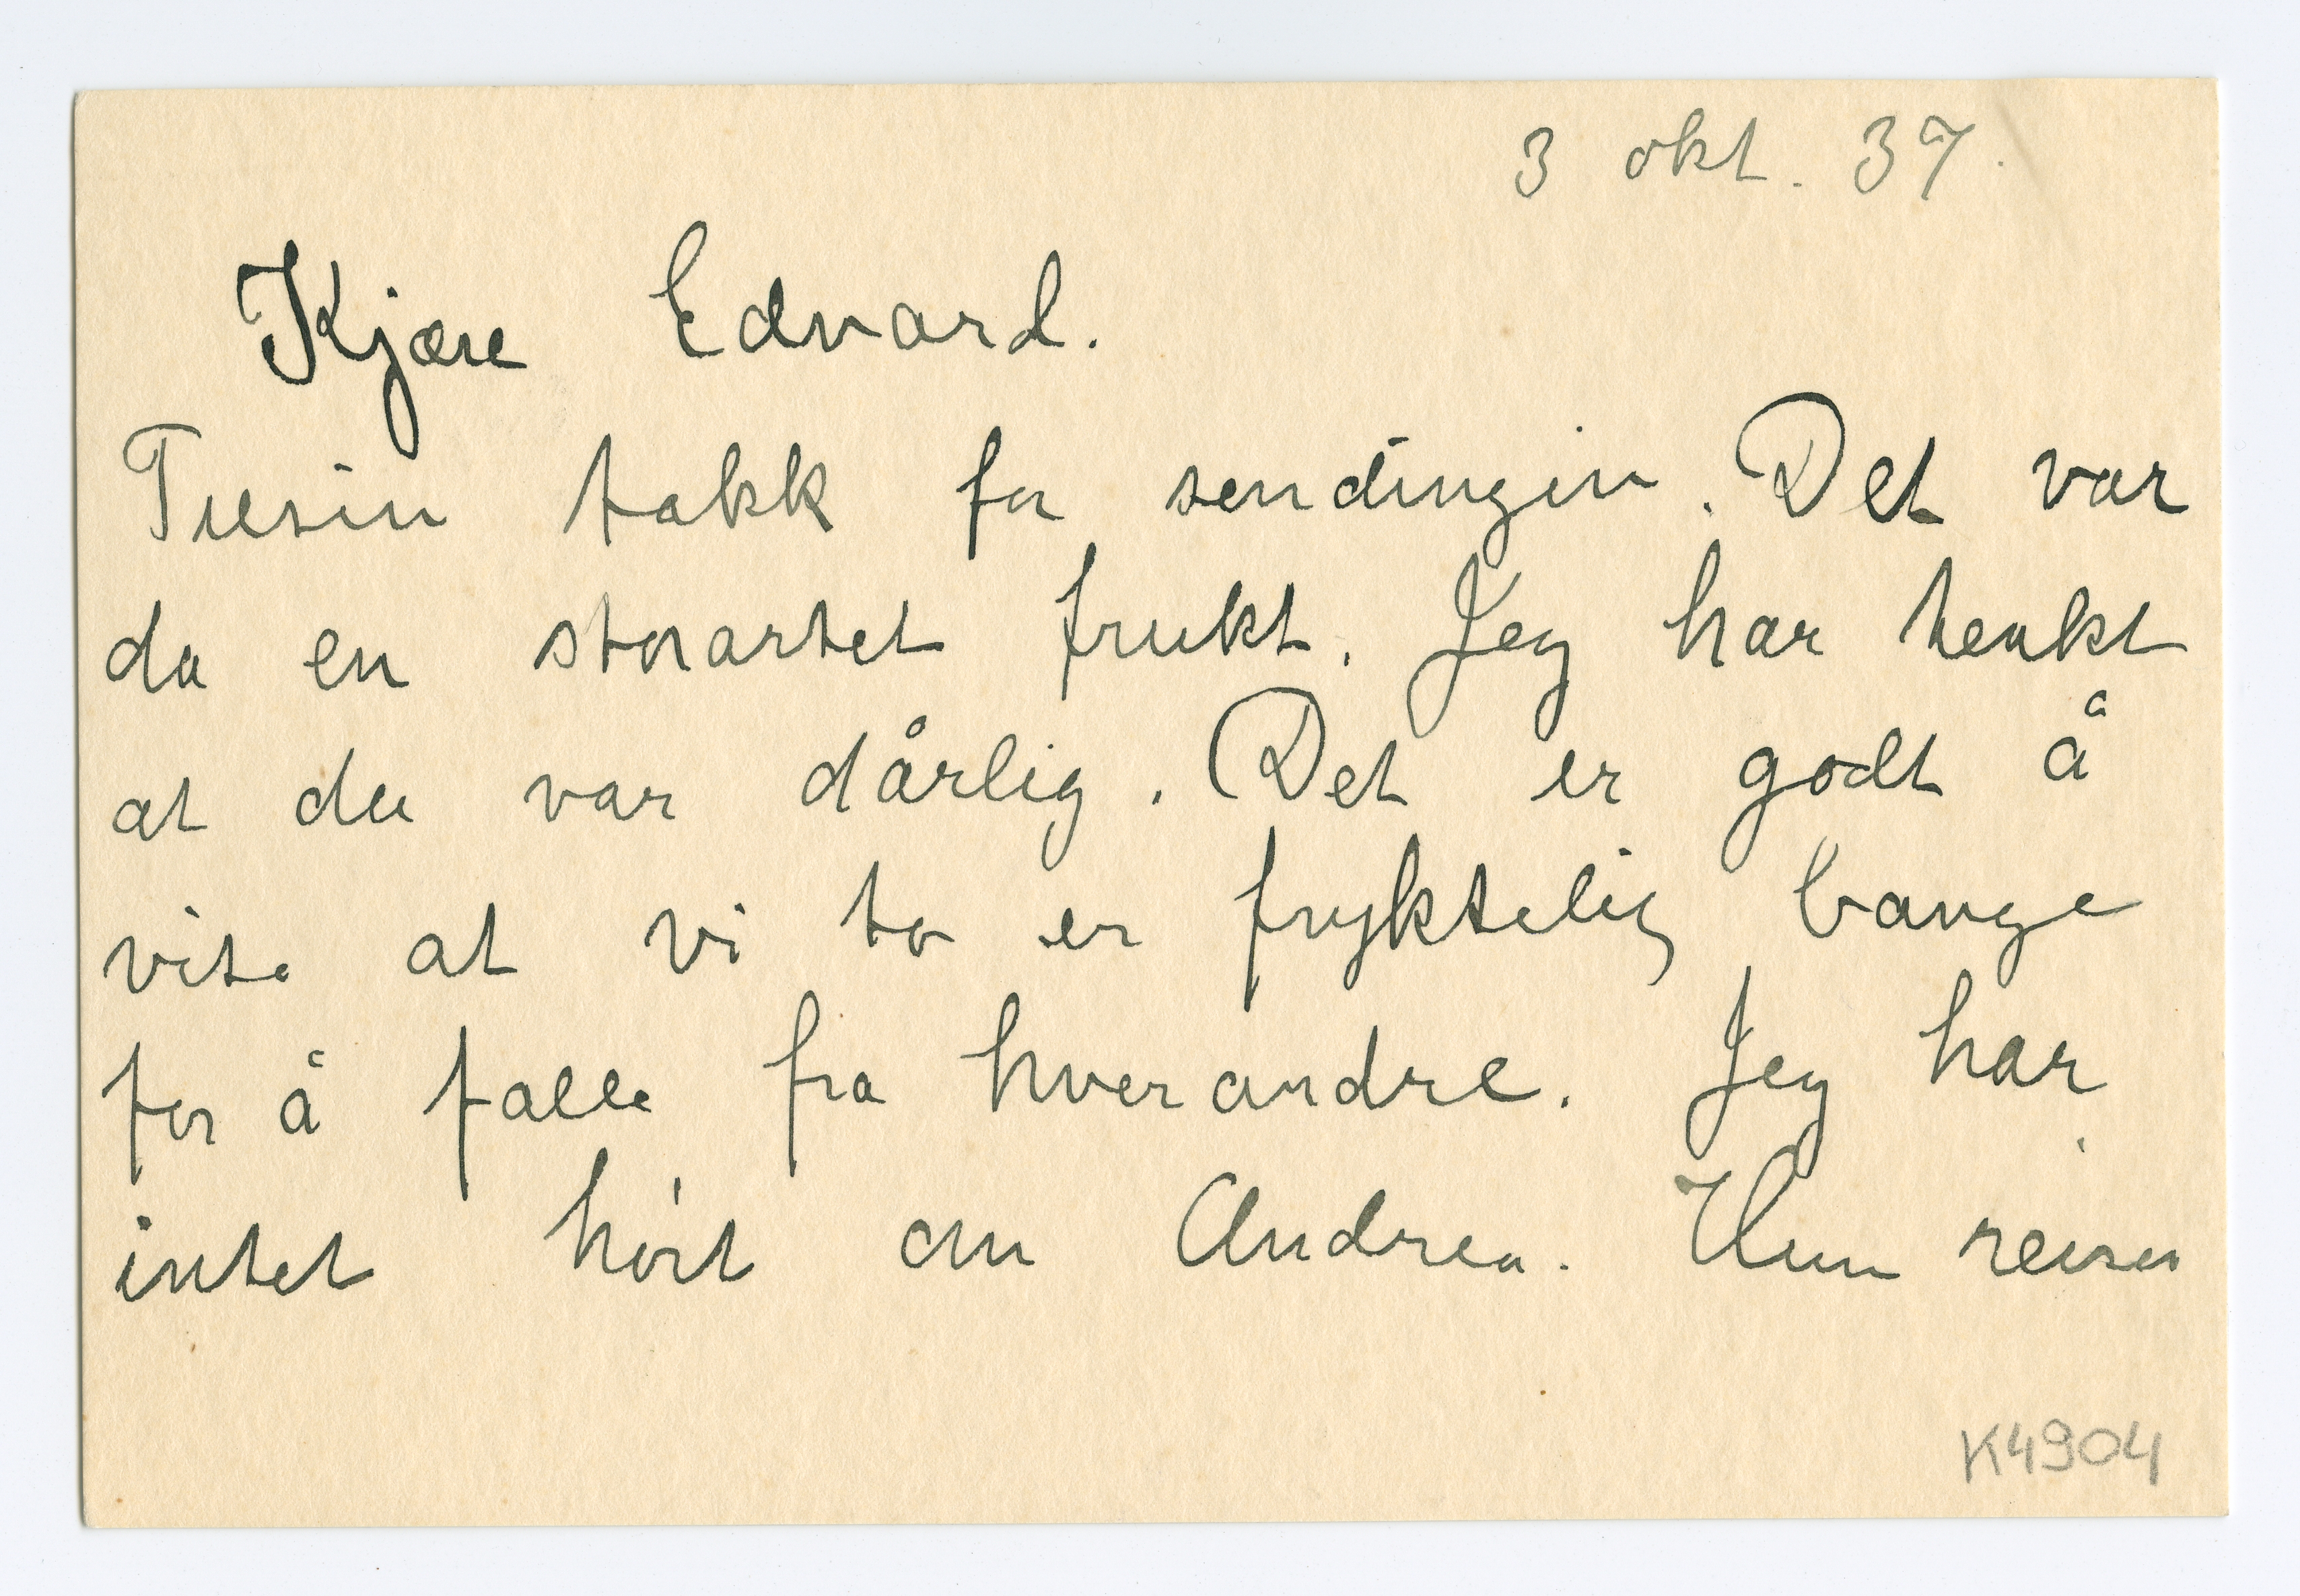 3 okt. 37.
Kjære Edvard.
Tusin takk for sendingin. Det var
da en storartet frukt. Jeg har tenkt
at du var dårlig. Det er godt å
vite at vi to er fryktelig bange
for å falle fra hverandre. Jeg har
intet hørt om Andrea. Hun reiser
K4904